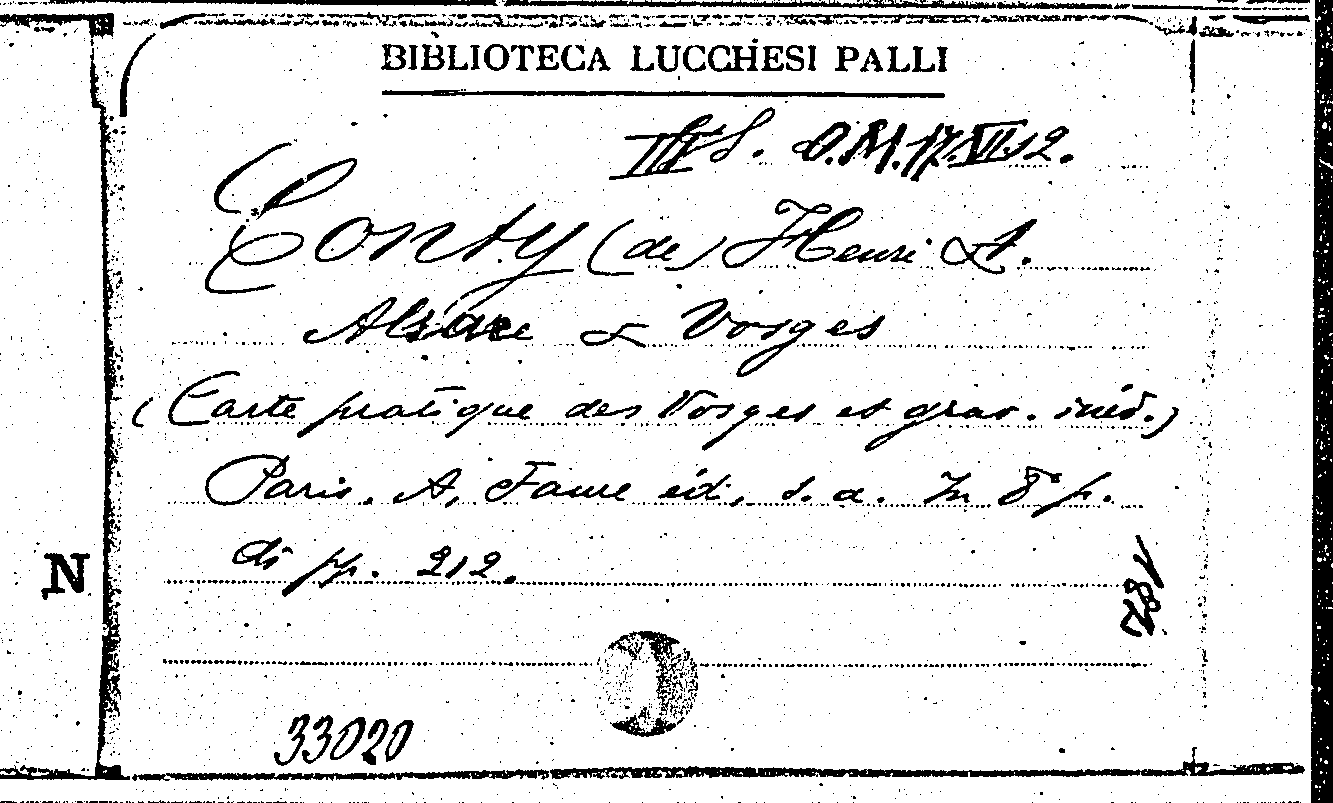 BIBLIOTECA LUCCHESI PALLI
O.M.17.VI.12.
Conty (de) Henri A.
Alsace & Vosges
(Carte pratique des Vosges et grav. inéd.)
Paris. A. Faure éd., s. a. In 8° p.
di pp. 212.
N
182
33020